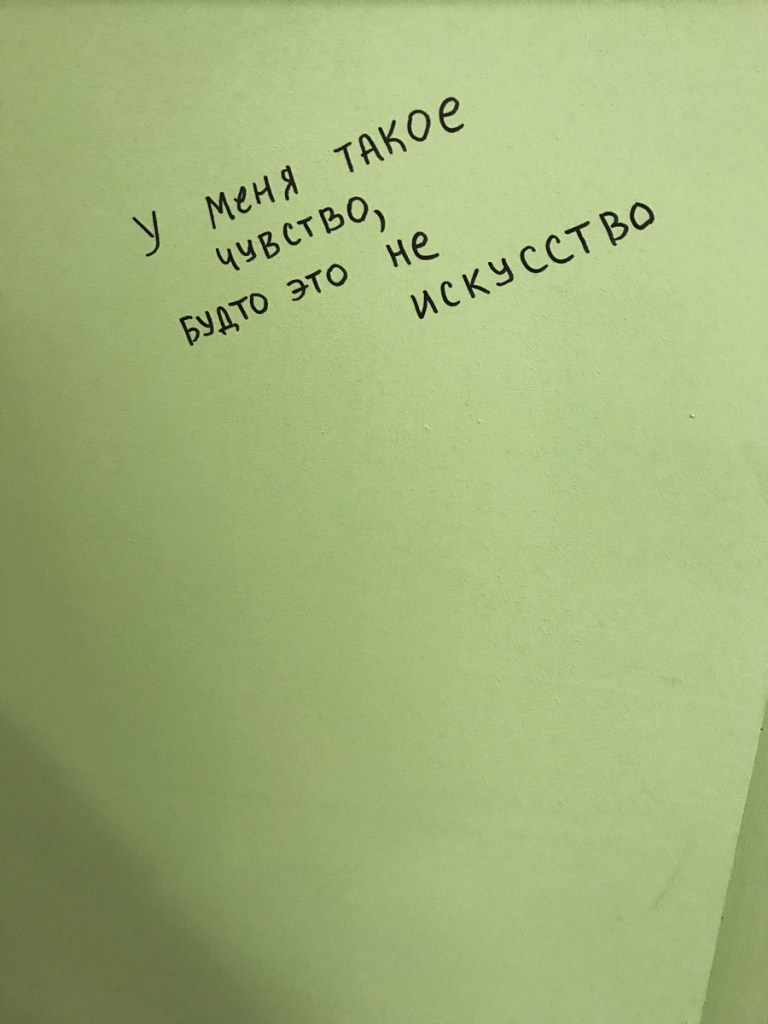 У МЕНЯ ТАКОЕ
ЧУВСТВО,
БУДТО ЭТО НЕ
ИСКУССТВО